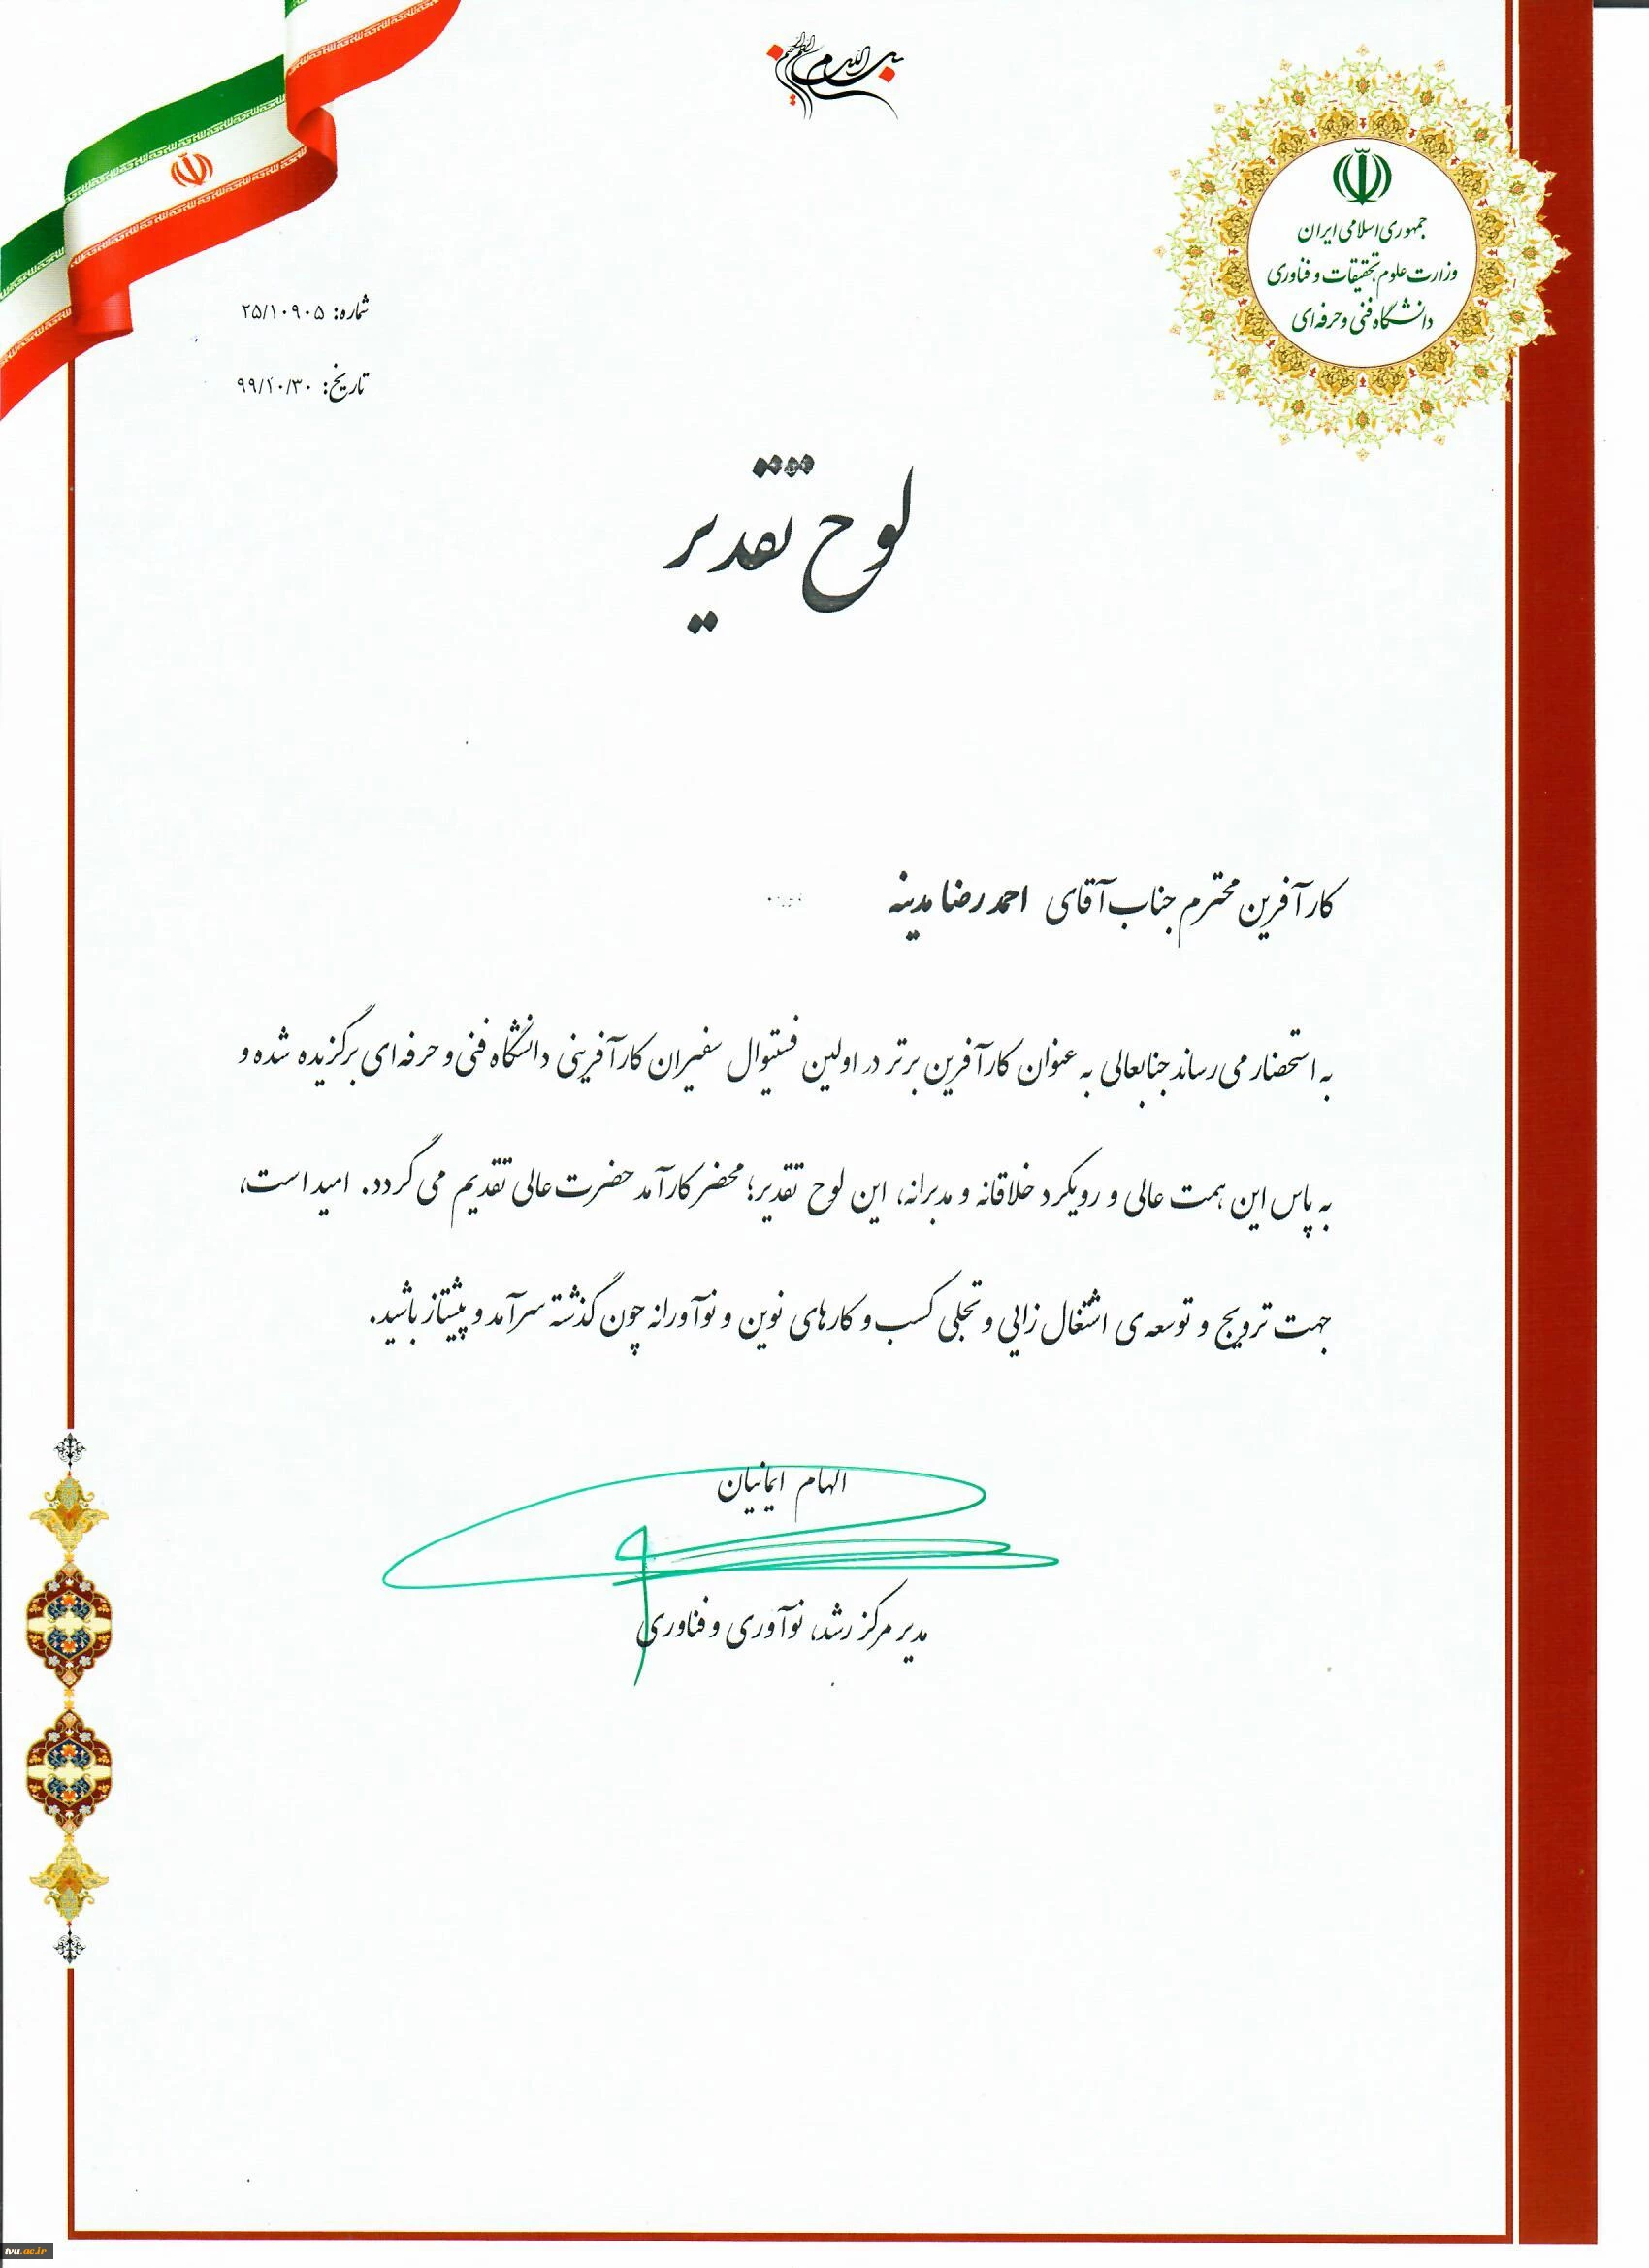 بسم الله الرحمن الرحیم
جمهوری اسلامی ایران
وزارت علوم، تحقیقات و فناوری
دانشگاه فنی و حرفه‌ای
شماره: ۲۵/۱۰۹۰۵
تاریخ: ۹۹/۱۰/۳۰
لوح تقدیر
کارآفرین محترم جناب آقای احمد رضا مدینه
به استحضار می رساند جنابعالی به عنوان کارآفرین برتر در اولین فستیوال سفیران کارآفرینی دانشگاه فنی و حرفه‌ای برگزیده شده و
به پاس این همت عالی و رویکرد خلاقانه و مدبرانه، این لوح تقدیر؛ محضر کارآمد حضرت عالی تقدیم می گردد. امید است،
جهت ترویج و توسعه ی اشتغال زایی و تجلی کسب و کارهای نوین و نوآورانه چون گذشته سرآمد و پیشتاز باشید.
الهام ایمانیان
مدیر مرکز رشد، نوآوری و فناوری
tvu.ac.ir